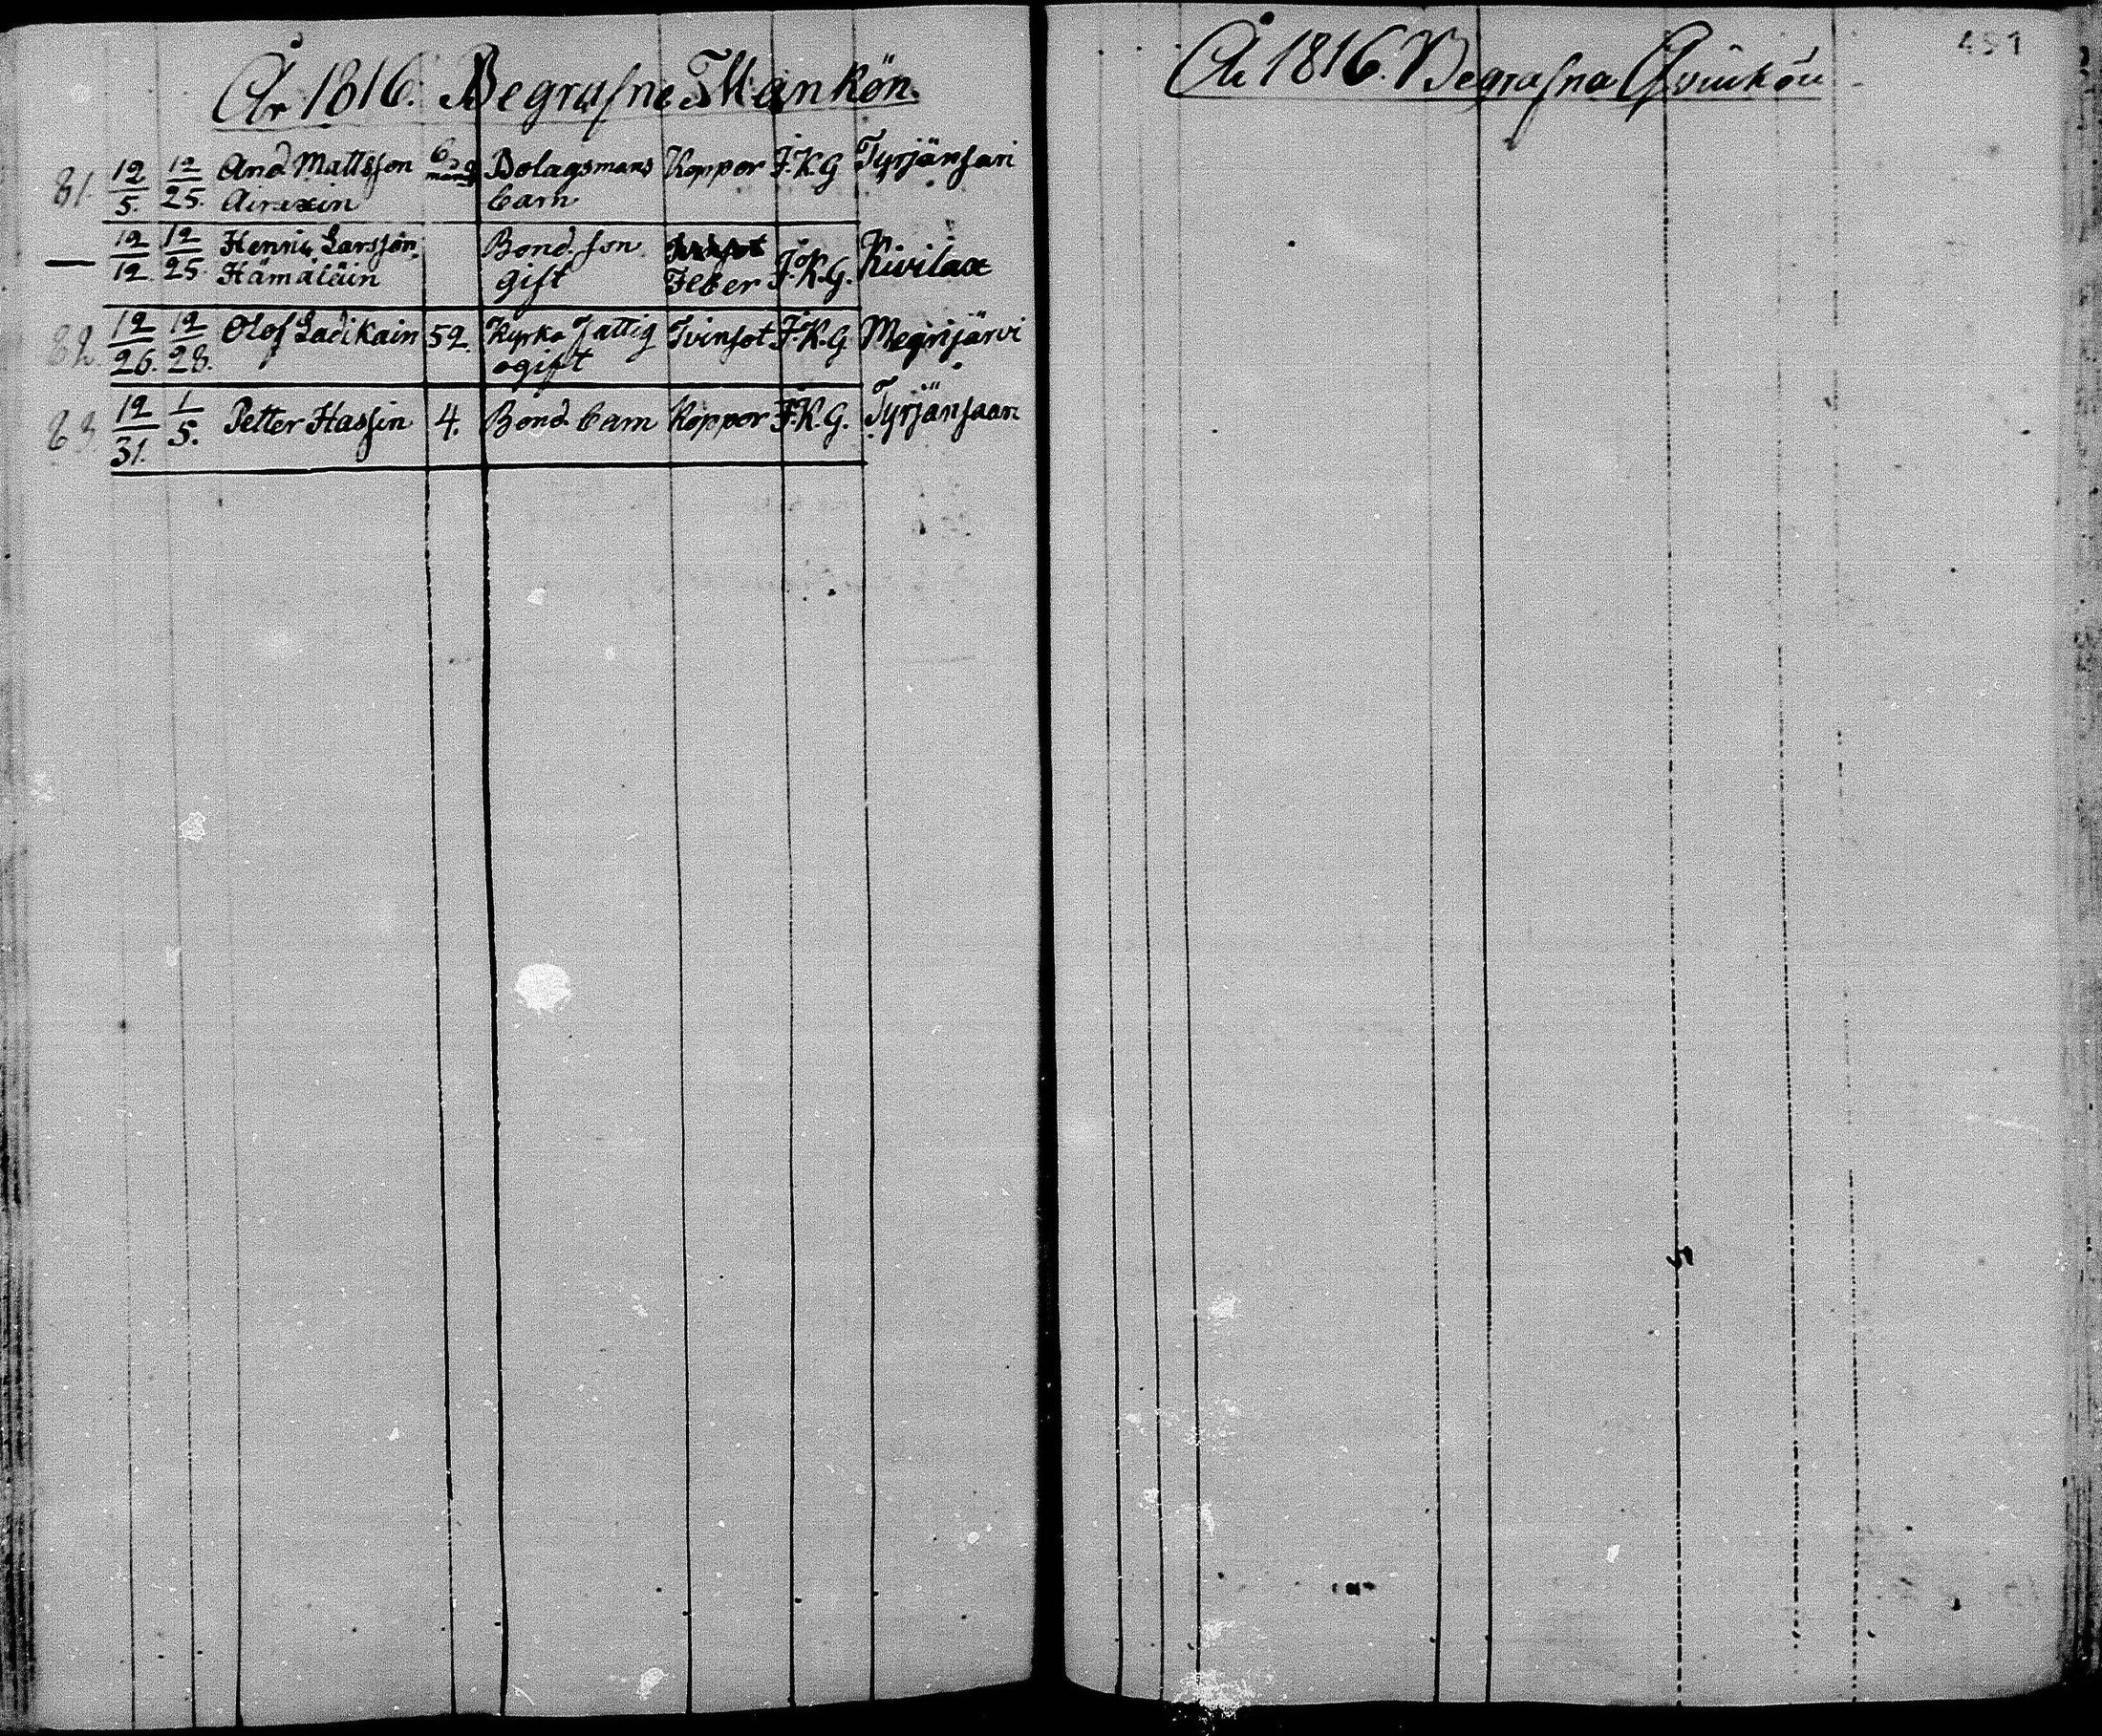 År 1816. Begrafne Mankön.
81. 12/5. 12/25. And Mattsson 6 mand Bolagsmans Koppor F.K.G Tyrjänsari
Airaxin barn
— 12/12. 12/25. Henric Larsson Bond. son
Hämäläin gift Feber F.K.G. Kivilax
82. 12/26. 12/28. Olof Ladikain 52. Kyrko fattig Tvinsot F.K.G Megrijärvi
ogift
83. 12/31. 1/5. Petter Hassin 4. Bond. barn Koppor F.K.G. Tyrjänsaari
År 1816. Begrafna Qvinkön
451